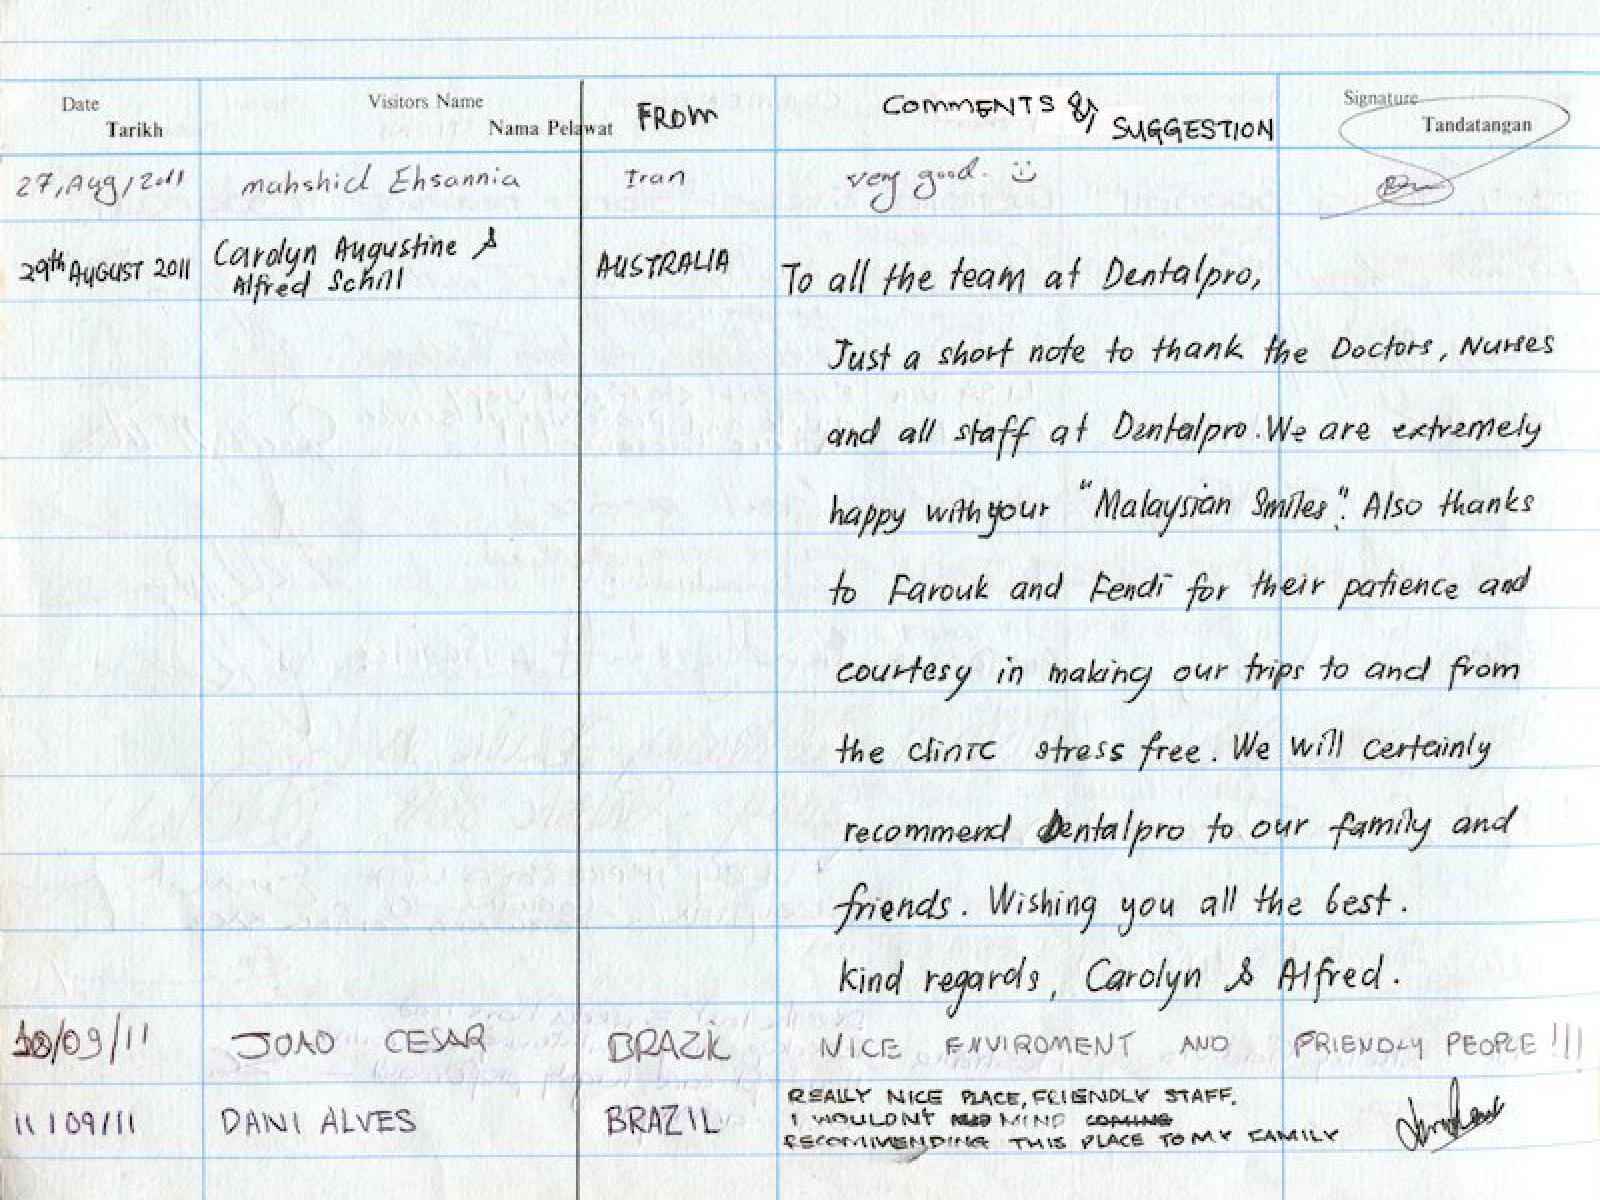 Date Visitors Name FROM COMMENTS & Signature
Tarikh Nama Pelawat SUGGESTION Tandatangan
27, Aug, 2011 mahshid Ehsannia Iran very good. :)
29th AUGUST 2011 Carolyn Augustine & AUSTRALIA
Alfred Schill
To all the team at Dentalpro,
Just a short note to thank the Doctors, Nurses
and all staff at Dentalpro. We are extremely
happy with your "Malaysian Smiles". Also thanks
to Farouk and Fendi for their patience and
courtesy in making our trips to and from
the clinic stress free. We will certainly
recommend Dentalpro to our family and
friends. Wishing you all the best.
Kind regards, Carolyn & Alfred.
/09/11 JOAO CESAR BRAZIL NICE ENVIROMENT AND FRIENDLY PEOPLE!!!
11/09/11 DANI ALVES BRAZIL
REALLY NICE PLACE, FRIENDLY STAFF.
I WOULDNT MIND COMING
RECOMMENDING THIS PLACE TO MY FAMILY